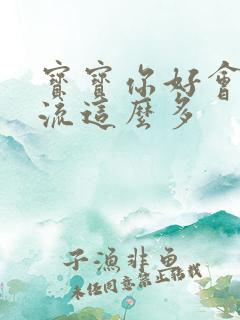 寶寶你好會
流這麼多
子漁非魚
未任同意禁止搭載